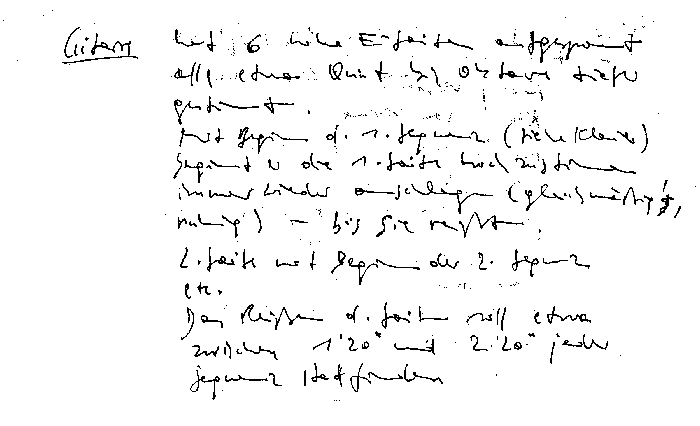 Gitarre hat 6 hohe E-Saiten aufgespannt
alle etwa Quint bis Oktave tiefer
gestimmt.
Mit Beginn d. 1. Sequenz (siehe Klavier)
beginnt er die 1. Saite hochzustimmen
immer wieder anschlagen (gleichmäßig,
ruhig) – bis sie reißt.
2. Saite mit Beginn der 2. Sequenz
etc.
Das Reißen d. Saiten soll etwa
zwischen 1'20" und 2'20" jeder
Sequenz stattfinden